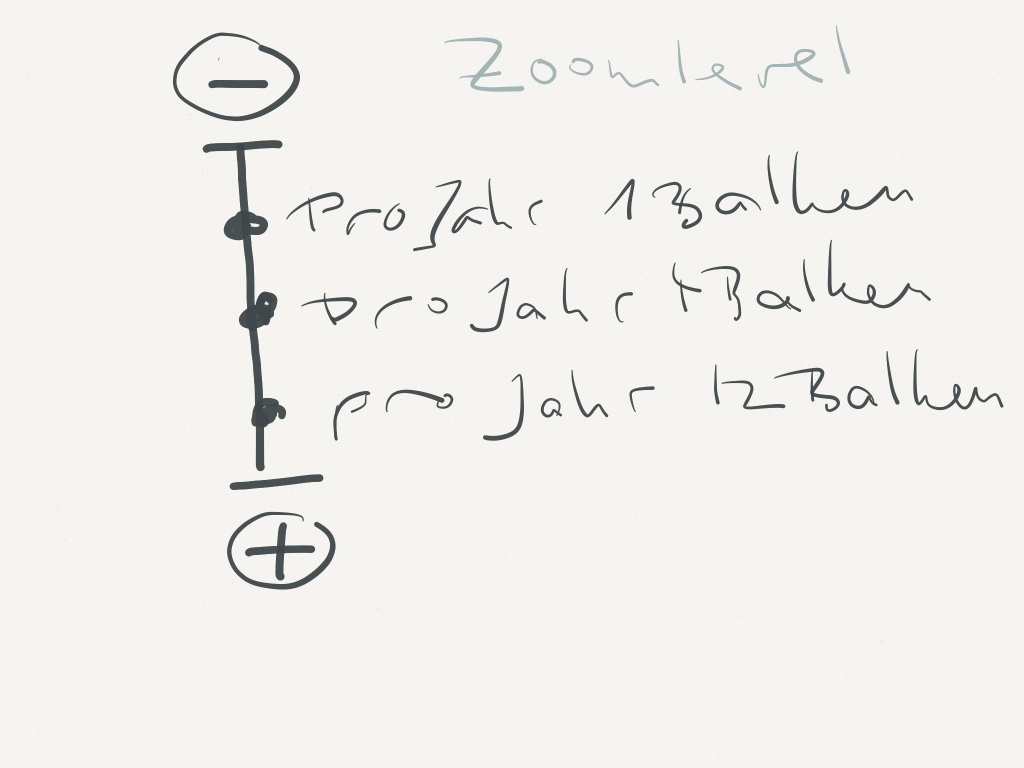 Zoomlevel
Pro Jahr 1 Balken
pro Jahr 4 Balken
pro Jahr 12 Balken